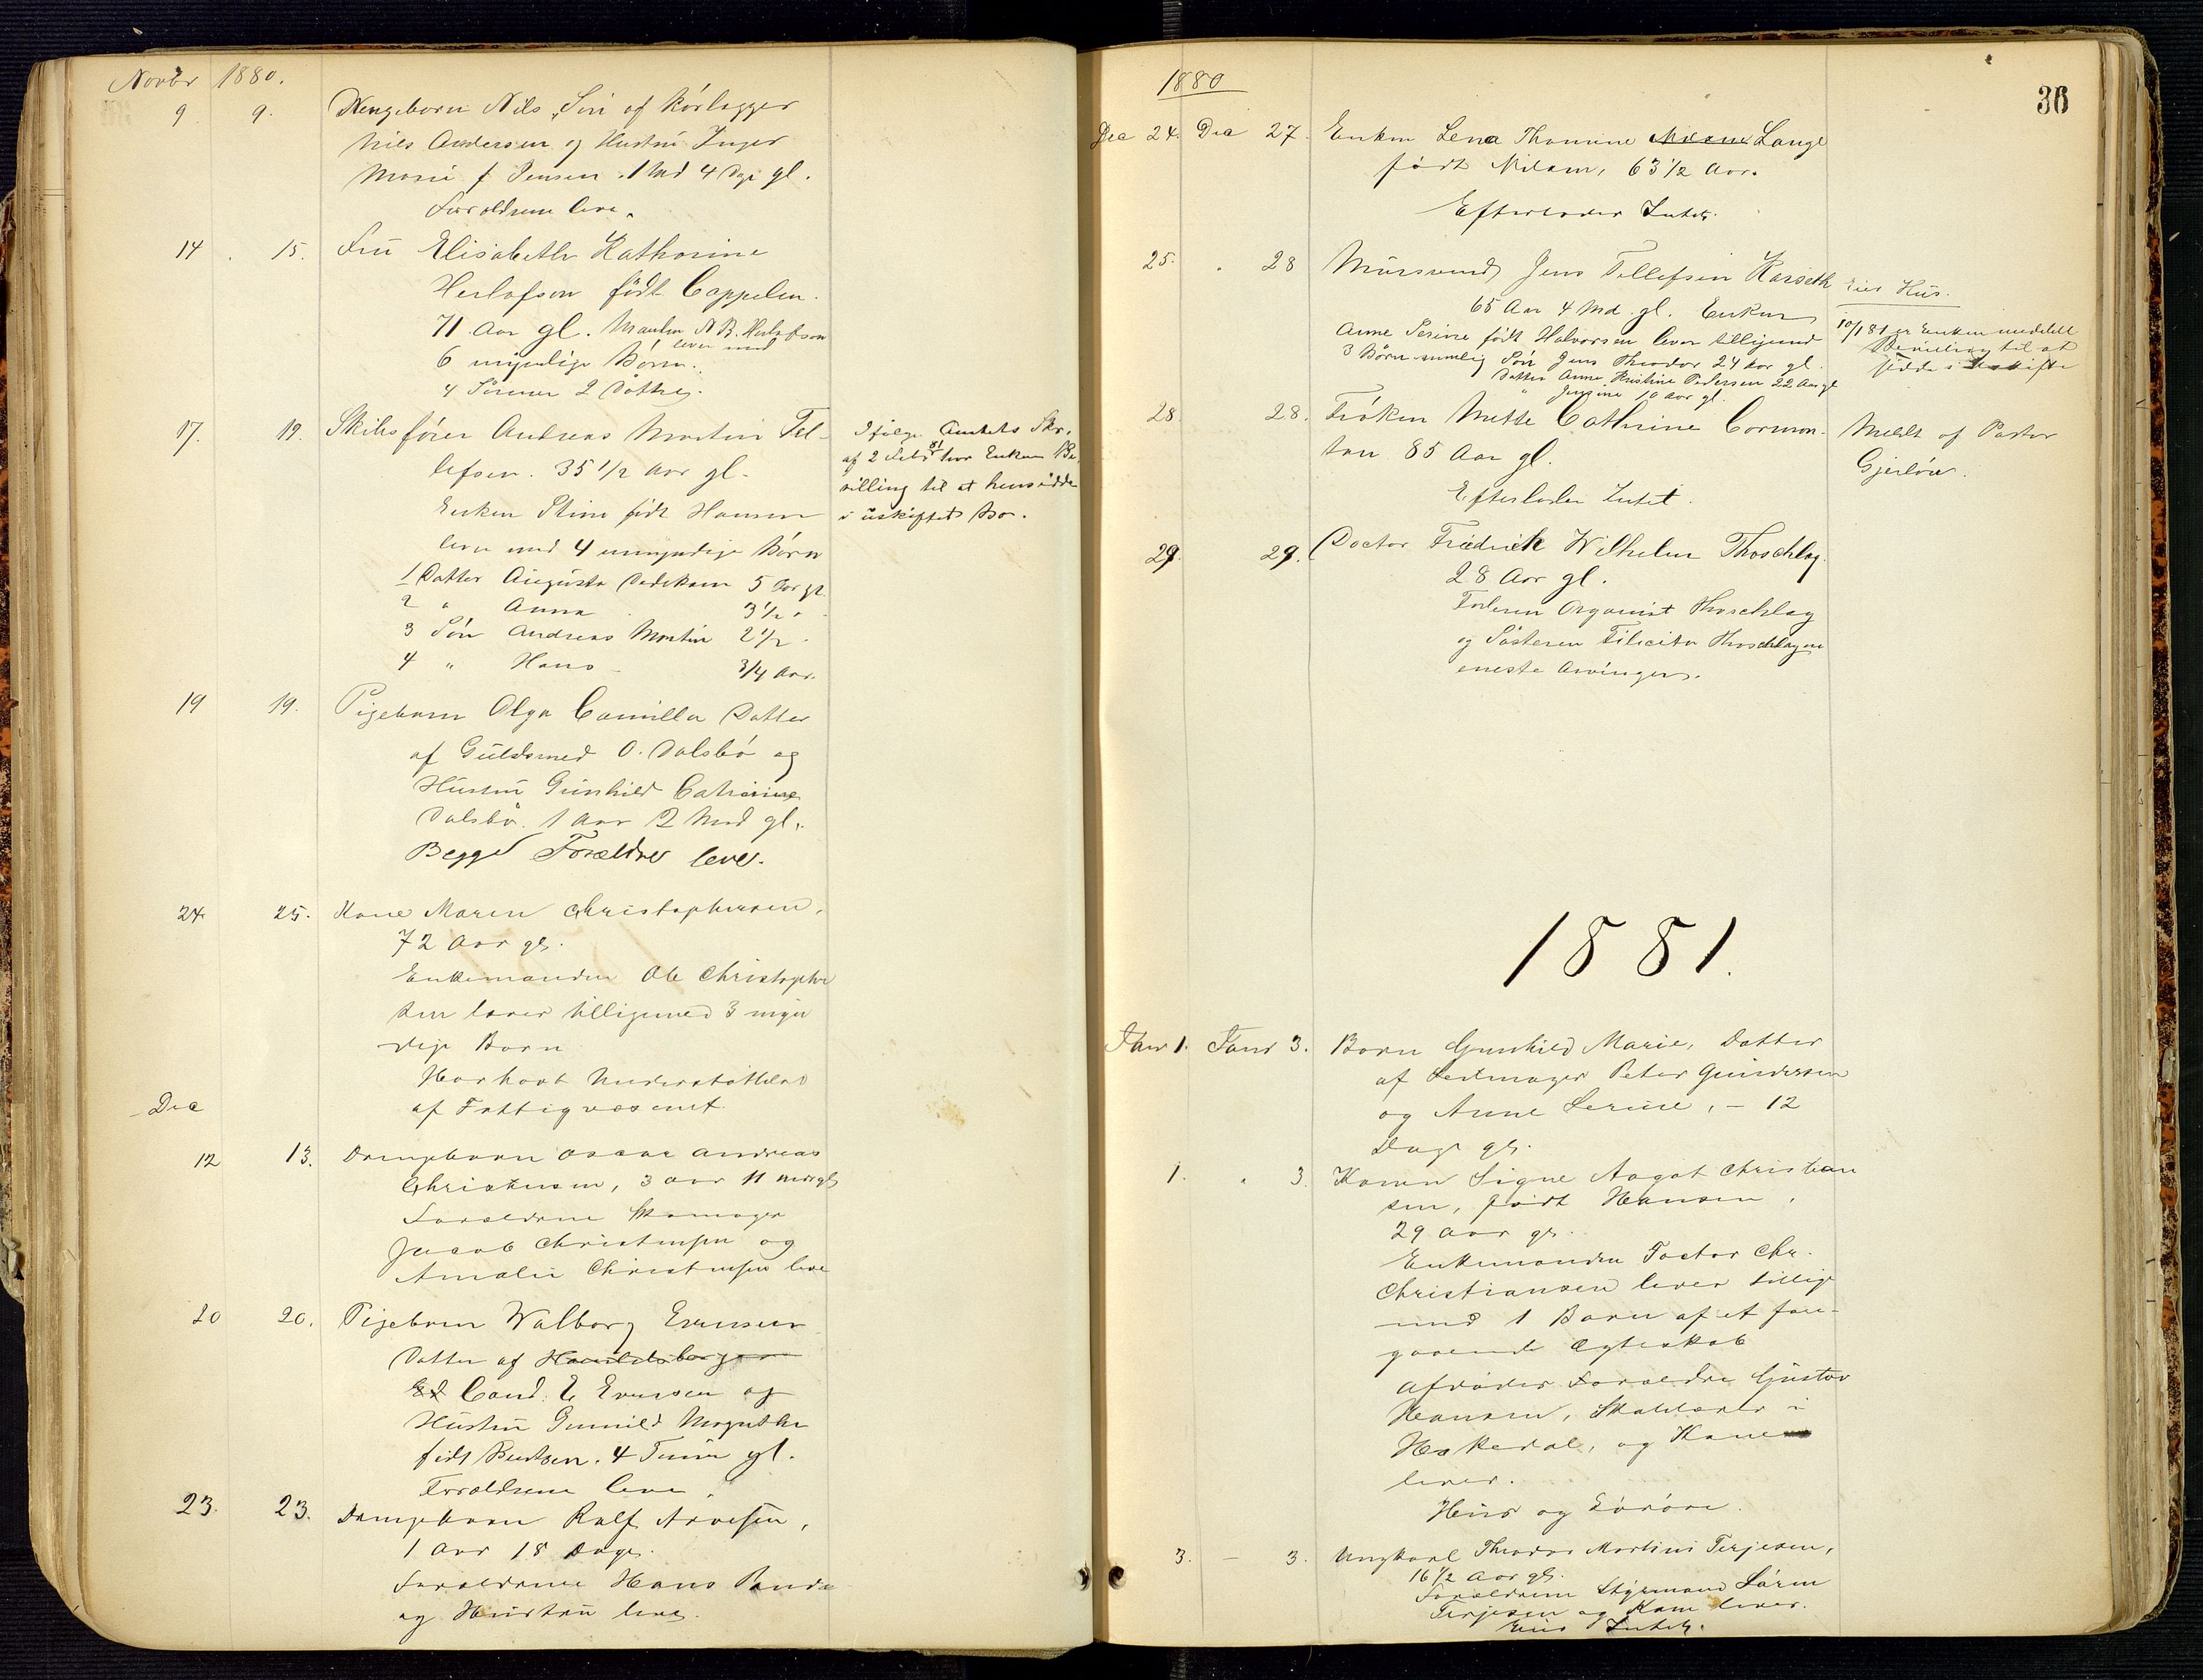 Novbr 1880.
9 9. Drengebarn Nils, Søn af
Nils Andersen og Hustru Inger
Marie f. Jensen. 1 Md 4 Dge gl.
Forældrene leve.
14 . 15. Fru Elisabeth Kathorine
Herlofson født Cappelen.
71 Aar gl. Manden N. B. Herlofson
lever med
6 myndige Børn.
4 Sønner 2 Døttre.
17. 19. Skibsfører Andreas Martin Tel-
lefsen. 35 1/2 Aar gl.
Enken Stine født Hansen
lever med 4 umyndige Børn
1 Datter Augusta Dedekam 5 Aar gl.
2 " Anna 3 1/2 "
3 Søn Andreas Martin 2 1/2 "
4 " Hans 3/4 Aar.
Ifølge Amtets Skr.
af 2 Febr 81 har Enken Be-
villing til at hensidde
i uskiftet Bo.
19 19. Pigebarn Olga Camilla Datter
af Guldsmed O. Dalsbø og
Hustru Gunhild Cathrine
Dalsbø. 1 Aar 2 Md gl.
Begge Forældre lever.
24 25. Kone Maren Christophersen,
72 Aar gl.
Enkemanden Ole Christopher
sen lever tilligemed 3 myn
dige Børn
Har havt Understøttelse
af Fattigvæsenet.
Dec
12 13. Drengebarn Oscar Andreas
Christensen, 3 Aar 11 Mdr gl
Forældrene Skomager
Jacob Christensen og
Amalie Christensen leve
20 20. Pigebarn Walborg Evensen
Datter af
Cand. E. Evensen og
Hustru Gunnild Magrethe
født Bentsen. 4 Timer gl.
Forældrene leve.
23. 23. Drengebarn Ralf Arvesen,
1 Aar 18 Dage.
Forældrene Hans
og Hustru leve.
1880
36
Dec 24. Dec 27. Enken Lena Thomine Lange
født Nilsen, 63 1/2 Aar.
Efterlader Intet.
25. " 28 Mursvend Jens Tellefsen Harseth
65 Aar 4 Md. gl. Enken
Anne Serine født Halvorsen lever tilligemed
3 Børn nemlig Søn Jens Theodor 24 Aar gl.
Datter Anne Kristine Pedersen 22 Aar gl
" Jensine 10 Aar gl.
Eier Hus.
10/1 81 er Enken meddelt
Bevilling til at
sidde i Uskifte
28. 28. Frøken Mette Cathrine Cormon-
tan 85 Aar gl.
Efterlader Intet.
Meldt af Pastor
Gjerløw.
29. 29. Doctor Fredrick Wilhelm Throschlag.
28 Aar gl.
Faderen Organist Throschlag
og Søsteren Filicita Throschlag ere
eneste Arvinger.
1881.
Janr 1. Janr 3. Barn Gunhild Marie, Datter
af Seilmager Peter Gundersen
og Anne Serine, - 12
Dage gl.
1. " 3. Konen Signe Aagot Christian
sen, født Hansen,
29 Aar gl.
Enkemanden Tostor Chr.
Christiansen lever tillige
med 1 Barn af et fore-
gaaende Ægteskab
Afdødes Forældre Gustav
Hansen, i
Haskedal, og Kone
lever.
Hus og Løsøre.
3. - 3. Ungkarl Theodor Martini Terjesen,
16 1/2 Aar gl.
Forældrene Styrmand Søren
Terjesen og Kone lever.
Eier Intet.